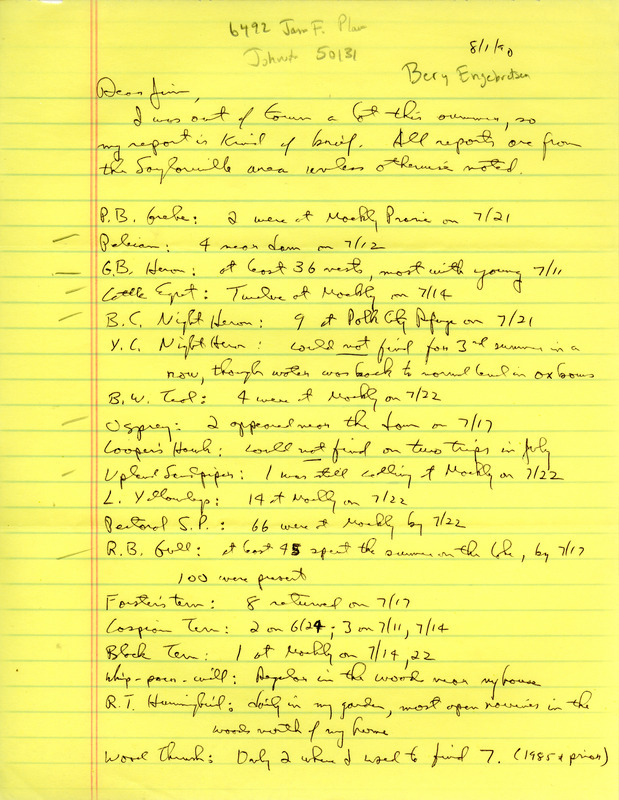 6492
Johnston 50131
8/1/90
Bery Engebretsen
Dear Jim,
I was out of town a lot this summer, so
my report is kind of brief. All reports are from
the Saylorville area unless otherwise noted.
P.B. Grebe: 2 were at Moeckly Prairie on 7/21
Pelican: 4 near dam on 7/12
G.B. Heron: at least 36 nests, most with young 7/11
Cattle Egret: Twelve at Moeckly on 7/14
B.C. Night Heron: 9 at Polk City Refuge on 7/21
Y.C. Night Heron: could not find for 3rd summer in a
row, though water was back to normal level in oxbows
B.W. Teal: 4 were at Moeckly on 7/22
Osprey: 2 appeared near the dam on 7/17
Cooper's Hawk: could not find on two trips in July
Upland Sandpiper: 1 was still calling at Moeckly on 7/22
L. Yellowlegs: 14 at Moeckly on 7/22
Pectoral S.P.: 66 were at Moeckly by 7/22
R.B. Gull: at least 45 spent the summer on the lake, by 7/17
100 were present
Forster's tern: 8 returned on 7/17
Caspian Tern: 2 on 6/24; 3 on 7/11, 7/14
Black Tern: 1 at Moeckly on 7/14, 22
Whip-poor-will: Regular in the woods near my house
R.T. Hummingbird: daily in my garden, most open in the
woods north of my home
Wood Thrush: Only 2 where I used to find 7. (1985 & prior)